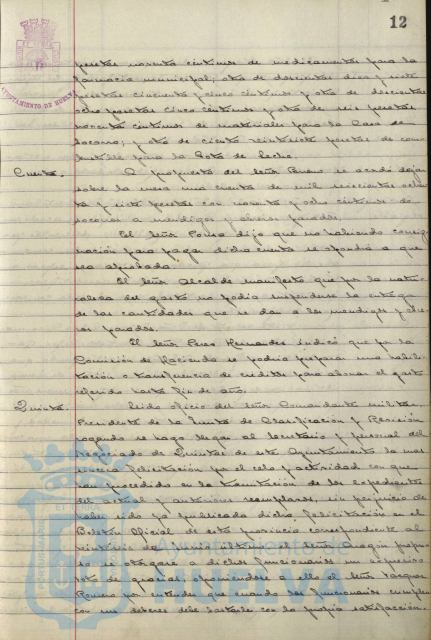 12
AYUNTAMIENTO DE HUELVA
pesetas noventa centimos de medicamentos para la
farmacia municipal; otra de doscientas diez y siete
pesetas cincuenta y cinco centimos y otra de doscientas
ocho pesetas cinco centimos y otra de seis pesetas
noventa centimos de materiales para la Casa de
Socorro; y otra de ciento veintisiete pesetas de com-
bustible para la Gota de leche.
Cuenta. A propuesta del señor se acordó dejar
sobre la mesa una cuenta de mil seiscientas ochen-
ta y siete pesetas con noventa y ocho centimos de
socorros a mendigos y obreros parados.
El señor Ponce dijo que no habiendo consig-
nación para pagar dicha cuenta se oponía a que
sea aprobada.
El señor Alcalde manifestó que por la natu-
raleza del gasto no podia suspenderse la entrega
de las cantidades que se dan a los mendigos y obre-
ros parados.
El señor Perez Hernandez indicó que por la
Comisión de Hacienda se podria preparar una habili-
tación o transferencia de creditos para abonar el gasto
referido hasta fin de año.
Quinta. Leido oficio del señor Comandante militar
Presidente de la Junta de Clasificación y Revisión
rogando se haga llegar al Secretario y personal del
Negociado de Quintas de este Ayuntamiento la mas
sincera felicitación por el celo y actividad con que
han procedido en la tramitación de los expedientes
del actual y anteriores reemplazos, sin perjuicio de
haber sido ya publicada dicha felicitación en el
Boletin Oficial de esta provincia correspondiente al
de el señor propu-
so se otorgara a dichos funcionarios un expresivo
voto de gracias, oponiendose a ello el señor Vazquez
Romero por entender que cuando los funcionarios cumplen
con un deber debe bastarle con la propia satisfacción.
Ayuntamiento de
HUELVA